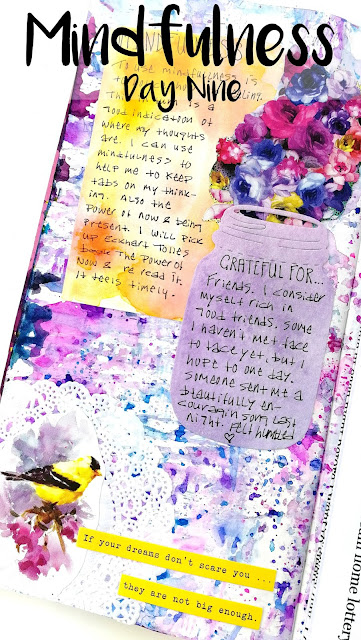 Mindfulness
Day Nine
MINDFULNESS
To use mindfulness is
to
This is a
good indication of
where my thoughts
are. I can use
mindfulness to
help me to keep
tabs on my think-
ing. Also the
power of now & being
present. I will pick
up Eckhart Tolles
book The Power of
Now & re read it.
It feels timely.
GRATEFUL FOR...
Friends. I consider
myself rich in
good friends. Some
I haven't met face
to face yet, but I
hope to one day.
Someone sent me a
beautifully en-
couragin song last
night. Felt humbled
If your dreams don't scare you ...
they are not big enough.
home lotter